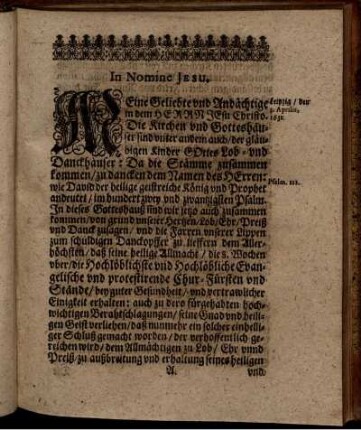 In Nomine JESU.
MEine Geliebte vnd Andächtige
in dem HERRN JEsu Christo.
Die Kirchen vnd Gotteshäu-
ser sind vnter andern auch / der gläu-
bigen Kinder GOttes Lob- vnd
Danckhäuser: Da die Stämme zusammen
kommen / zu dancken dem Namen des HErren:
wie David der heilige geistreiche König vnd Prophet
andeutet / im hundert zwey vnd zwantzigsten Psalm.
In dieses Gotteshauß sind wir jetzo auch zusammen
kommen / von grund vnserer Hertzen / Lob / Ehr / Preiß
vnd Danck zusagen / vnd die Farren vnserer Lippen
zum schuldigen Danckopffer zu lieffern dem Aller-
höchsten / daß seine heilige Allmacht / die 8. Wochen
vber / die Hochlöblichste vnd Hochlöbliche Evan-
gelische vnd protestirende Chur-Fürsten vnd
Stände / bey guter Gesundheit / vnd vertrawlicher
Einigkeit erhalten: auch zu dero fürgehabten hoch-
wichtigen Berahtschlagungen / seine Gnad vnd heili-
gen Geist verliehen / daß nunmehr ein solcher einhelli-
ger Schluß gemacht worden / der verhoffentlich ge-
reichen wird / dem Allmächtigen zu Lob / Ehr vnnd
Preiß / zu außbreitung vnd erhaltung seines heiligen
A. vnd
Leipzig / den
3. Aprilis,
1631.
Psalm. 122.